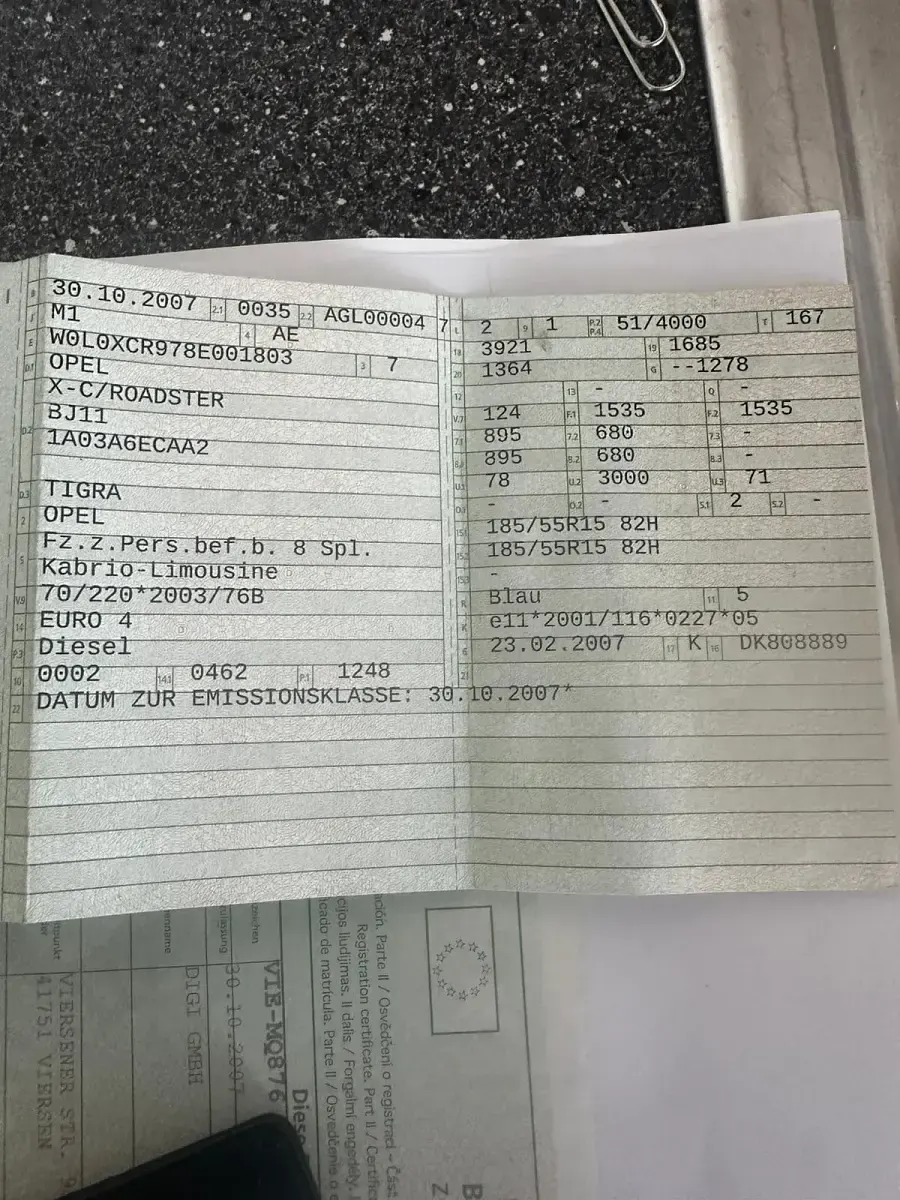 B 30.10.2007 2.1 0035 2.2 AGL00004 7
J M1 4 AE
E W0L0XCR978E001803 3 7
D.1 OPEL
X-C/ROADSTER
D.2 BJ11
1A03A6ECAA2
D.3 TIGRA
2 OPEL
5 Fz.z.Pers.bef.b. 8 Spl.
Kabrio-Limousine
V.9 70/220*2003/76B
14 EURO 4
P.3 Diesel
10 0002 14.1 0462 P.1 1248
22 DATUM ZUR EMISSIONSKLASSE: 30.10.2007*
L 2 9 1 P.2 P.4 51/4000 T 167
18 3921 19 1685
20 1364 G --1278
12 13 - Q -
V.7 124 F.1 1535 F.2 1535
7.1 895 7.2 680 7.3 -
8.1 895 8.2 680 8.3 -
U.1 78 U.2 3000 U.3 71
O.1 - O.2 - S.1 2 S.2 -
15.1 185/55R15 82H
15.2 185/55R15 82H
15.3 -
R Blau 11 5
K e11*2001/116*0227*05
6 23.02.2007 17 K 16 DK808889
21
ación. Parte II / Osvědčení o registraci – Část
Registration certificate. Part II / Certific
cijos liudijimas. II dalis / Forgalmi engedély.
icado de matrícula. Parte II / Osvedčenie o e
Diese
zeichen VIE-MQ876
zulassung 30.10.2007
enname DIGI GMBH
VIERSENER STR. 9
41751 VIERSEN
B
Z